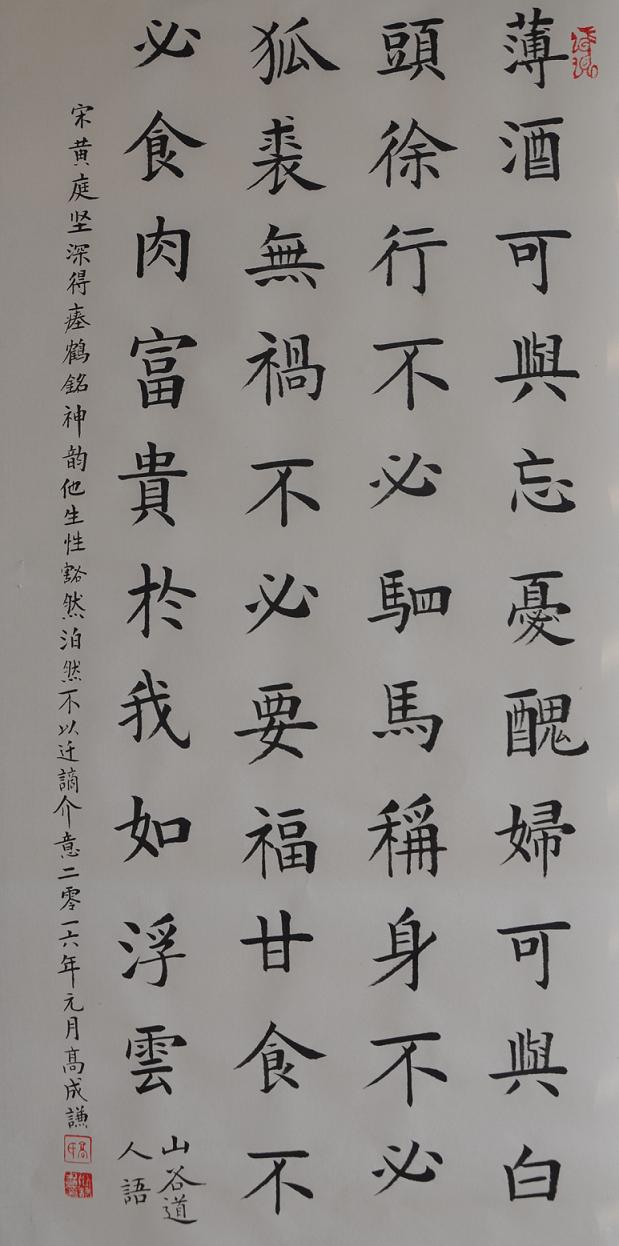 薄酒可與忘憂醜婦可與白
頭徐行不必駟馬稱身不必
狐裘無禍不必要福甘食不
必食肉富貴於我如浮雲
山谷道
人語
宋黄庭坚深得瘗鹤銘神韵他生性豁然泊然不以迁謫介意二零一六年元月髙成謙